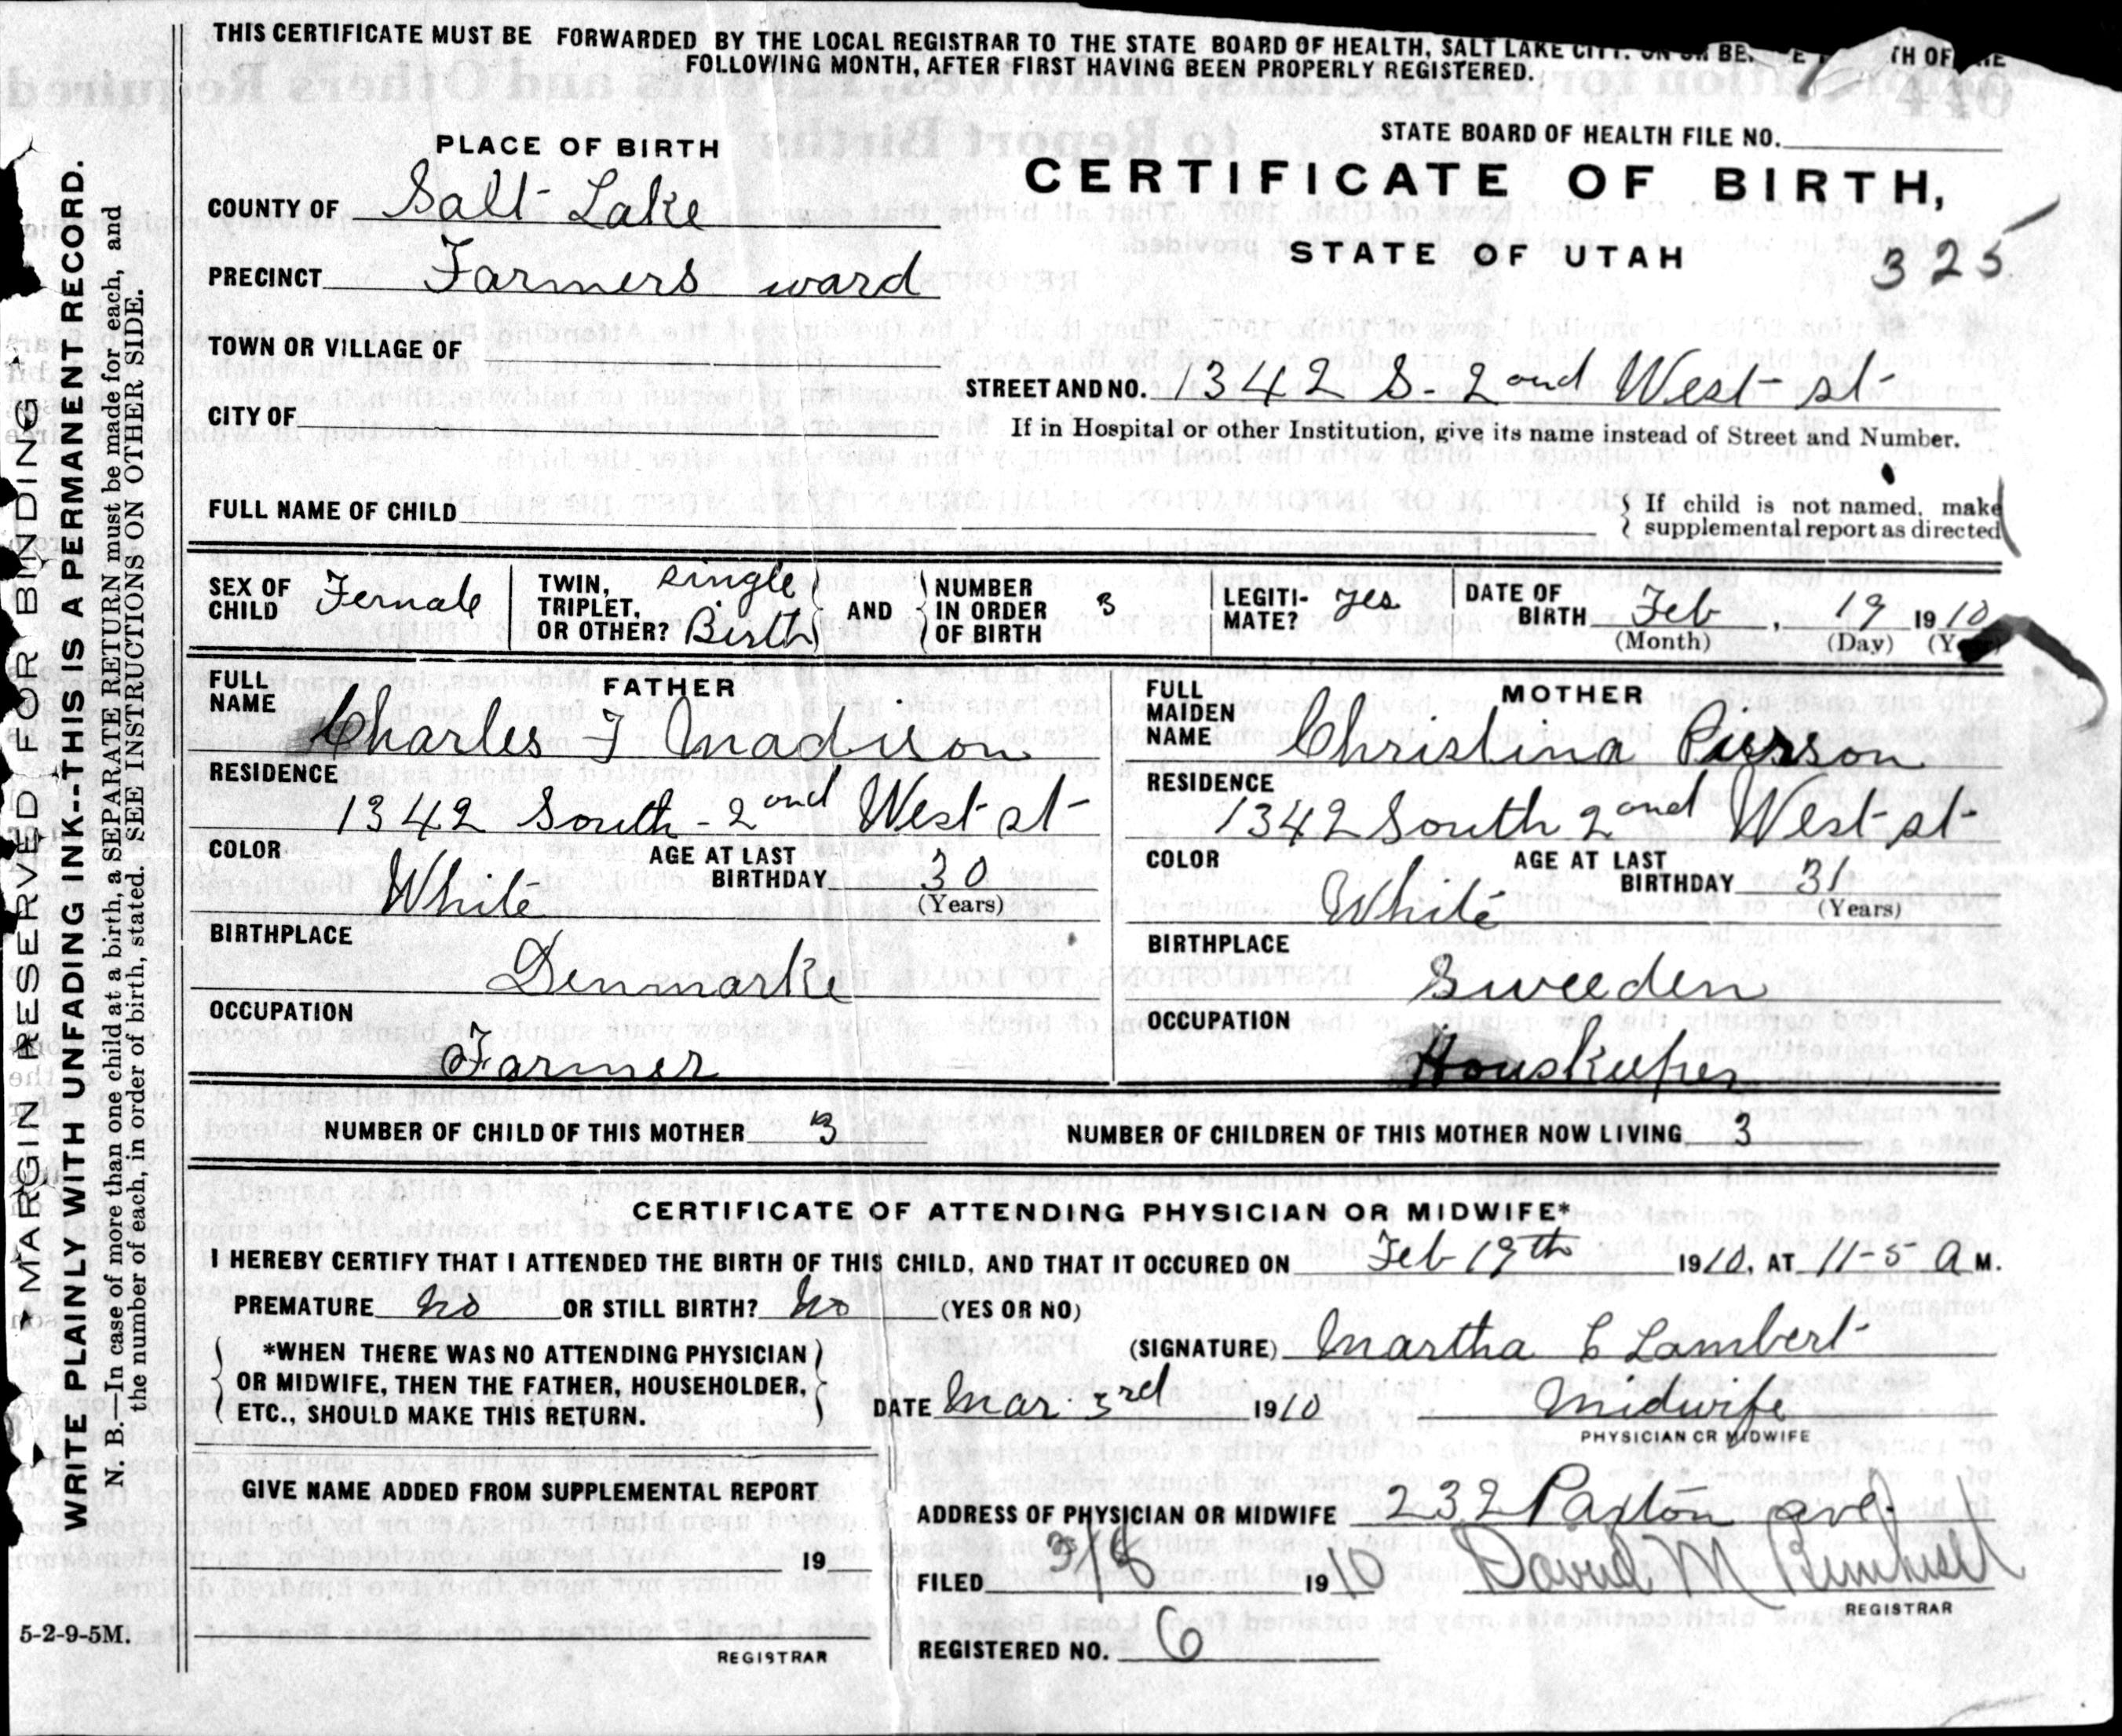 THIS CERTIFICATE MUST BE FORWARDED BY THE LOCAL REGISTRAR TO THE STATE BOARD OF HEALTH, SALT LAKE CITY, ON OR BE TH OF THE
FOLLOWING MONTH, AFTER FIRST HAVING BEEN PROPERLY REGISTERED.
STATE BOARD OF HEALTH FILE NO.
PLACE OF BIRTH
CERTIFICATE OF BIRTH,
COUNTY OF Salt Lake
STATE OF UTAH
325
PRECINCT Farmers ward
TOWN OR VILLAGE OF
STREET AND NO. 1342 S- 2 and West st
CITY OF
If in Hospital or other Institution, give its name instead of Street and Number.
FULL NAME OF CHILD
If child is not named, make
supplemental report as directed
SEX OF CHILD Female
TWIN, TRIPLET, OR OTHER? single Birth
AND NUMBER IN ORDER OF BIRTH 3
LEGITI-MATE? yes
DATE OF BIRTH Feb, 19 1910
(Month) (Day)
FATHER
FULL NAME Charles F Madison
RESIDENCE
1342 South - 2 and West st
COLOR White AGE AT LAST BIRTHDAY 30
(Years)
BIRTHPLACE
Denmarke
OCCUPATION
Farmer
MOTHER
FULL MAIDEN NAME Christina Pierson
RESIDENCE
1342 South 2 and West st
COLOR White AGE AT LAST BIRTHDAY 31
(Years)
BIRTHPLACE
Sweeden
OCCUPATION
Houskeeper
NUMBER OF CHILD OF THIS MOTHER 3 NUMBER OF CHILDREN OF THIS MOTHER NOW LIVING 3
CERTIFICATE OF ATTENDING PHYSICIAN OR MIDWIFE*
I HEREBY CERTIFY THAT I ATTENDED THE BIRTH OF THIS CHILD, AND THAT IT OCCURED ON Feb 19th 1910, AT 11-5 A M.
PREMATURE no OR STILL BIRTH? no (YES OR NO)
(SIGNATURE) Martha C Lambert
*WHEN THERE WAS NO ATTENDING PHYSICIAN
OR MIDWIFE, THEN THE FATHER, HOUSEHOLDER,
ETC., SHOULD MAKE THIS RETURN.
DATE Mar. 3rd 1910 Midwife
PHYSICIAN OR MIDWIFE
GIVE NAME ADDED FROM SUPPLEMENTAL REPORT
19
REGISTRAR
ADDRESS OF PHYSICIAN OR MIDWIFE 232 Paxton ave
FILED 1910 David M
REGISTRAR
REGISTERED NO. 6
5-2-9-5M.
A MARGIN RESERVED FOR BINDING
WRITE PLAINLY WITH UNFADING INK--THIS IS A PERMANENT RECORD.
N. B.—In case of more than one child at a birth, a SEPARATE RETURN must be made for each, and
the number of each, in order of birth, stated. SEE INSTRUCTIONS ON OTHER SIDE.